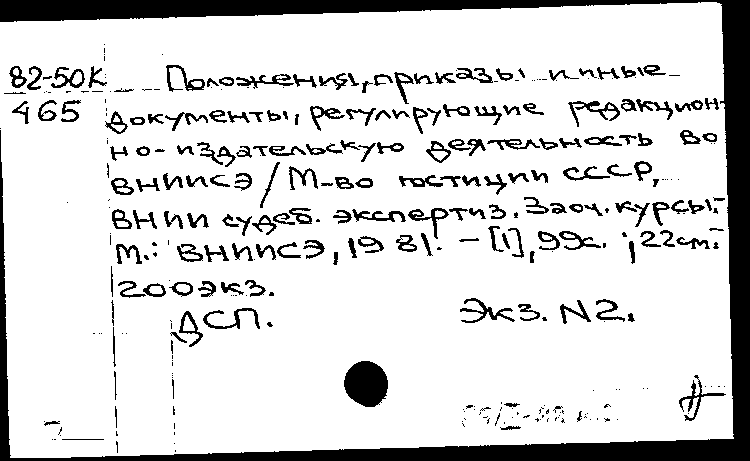 82-50К Положения, приказы и иные
465 документы, регулирующие редакцион-
но-издательскую деятельность во
ВНИИСЭ / М-во юстиции СССР,
ВНИИ судеб. экспертиз. Заоч. курсы.-
М.: ВНИИСЭ, 1981. - [1], 99с. ; 22см.-
200экз.
ДСП. Экз. N2.